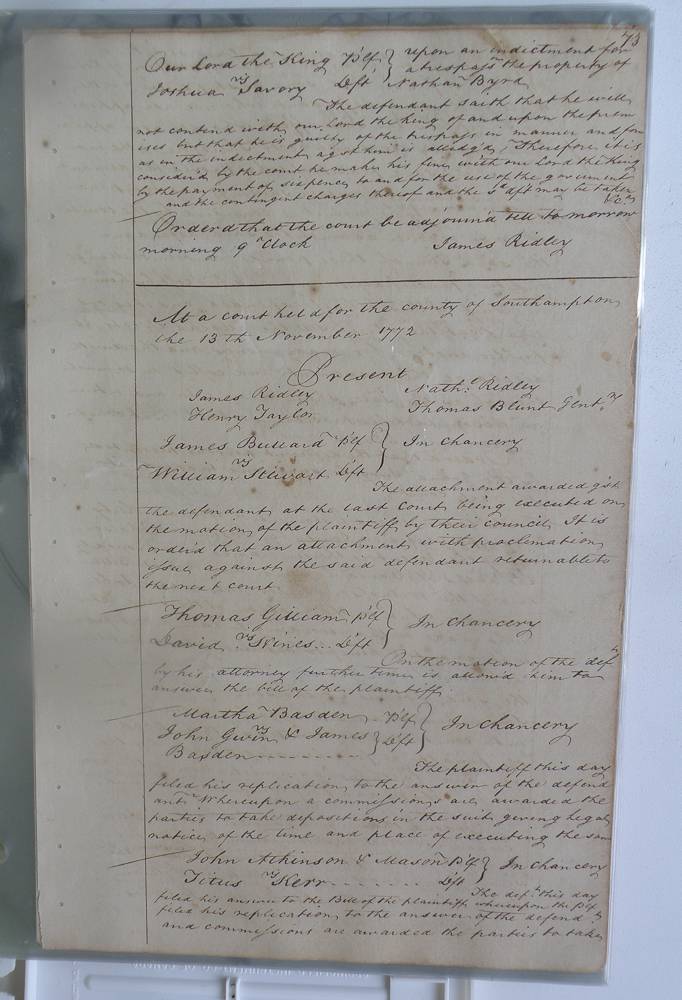 73
Our Lord the King Pltf } upon an indictment for
vs a trespass the property of
Joshua Savory Deft } Nathan Byrd
The defendant saith that he will
not contend with our Lord the King of and upon the prem
ises but that he is guilty of the trespass in manner and form
as in the indictment agst him is alledg'd, Therefore it is
consider'd by the court he makes his fine with our Lord the King
by the payment of sixpence to and for the use of the government
and the contingent charges thereof and the sd deft may be taken
&c
Orderd that the court be adjournd till to morrow
morning 9 oClock James Ridley
At a court held for the county of Southampton,
the 13th November 1772
Present
James Ridley Nathl Ridley
Henry Taylor Thomas Blunt Gentn
James Bullard Pltf } In Chancery
vs
William Stewart Deft
The attachment awarded gst
the defendant at the last Court being executed on
the motion of the plaintiff by their council It is
order'd that an attachment with proclamation,
issue against the said defendant returnable to
the next court
Thomas Gilliam Pltf } In Chancery
vs
David Wines .. Deft
On the motion of the deft
by his attorney further time is allow'd him to
answer the bill of the plaintiff.
Martha Basden Pltf } In Chancery
vs
John Gwin & James } Deft
Basden
The plaintiff this day
filed his replication, to the answer of the defend
ant Whereupon a commissions are awarded the
parties to take depositions in the suit giving legal
notice of the time and place of executing the same
John Atkinson & Mason Pltf } In Chancery
vs
Titus Kerr Deft
The deft this day
filed his answer to the Bill of the plaintiff whereupon the Pltf
filed his replication, to the answer of the defendt
and commissions are awarded the parties to take